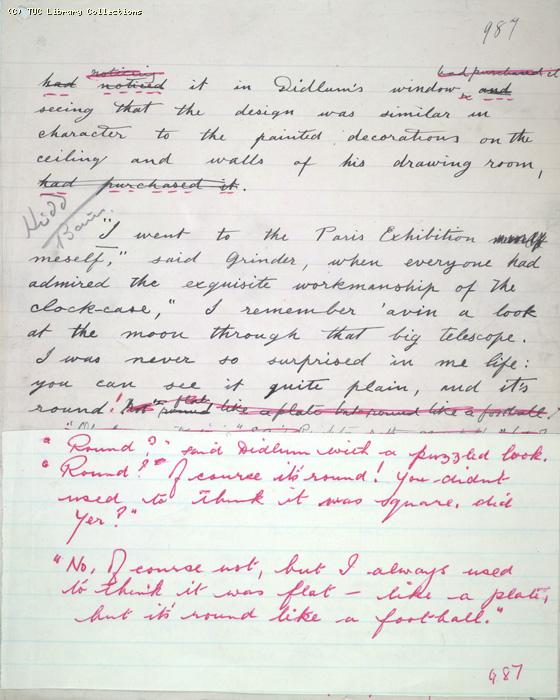 (C) TUC Library Collections
987
noticing had purchased it
had noticed it in Didlum's window and
seeing that the design was similar in
character to the painted decorations on the
ceiling and walls of his drawing room,
had purchased it.
"I went to the Paris Exhibition
meself," said Grinder, when everyone had
admired the exquisite workmanship of the
clock-case," I remember 'avin a look
at the moon through that big telescope.
I was never so surprised in me life:
you can see it quite plain, and it's
round! flat like a plate but round like a football.
"Round?" said Didlum with a puzzled look.
"Round?" Of course it's round! You didn't
used to think it was square, did
yer?"
"No, Of course not, but I always used
to think it was flat – like a plate,
but it's round like a football."
987